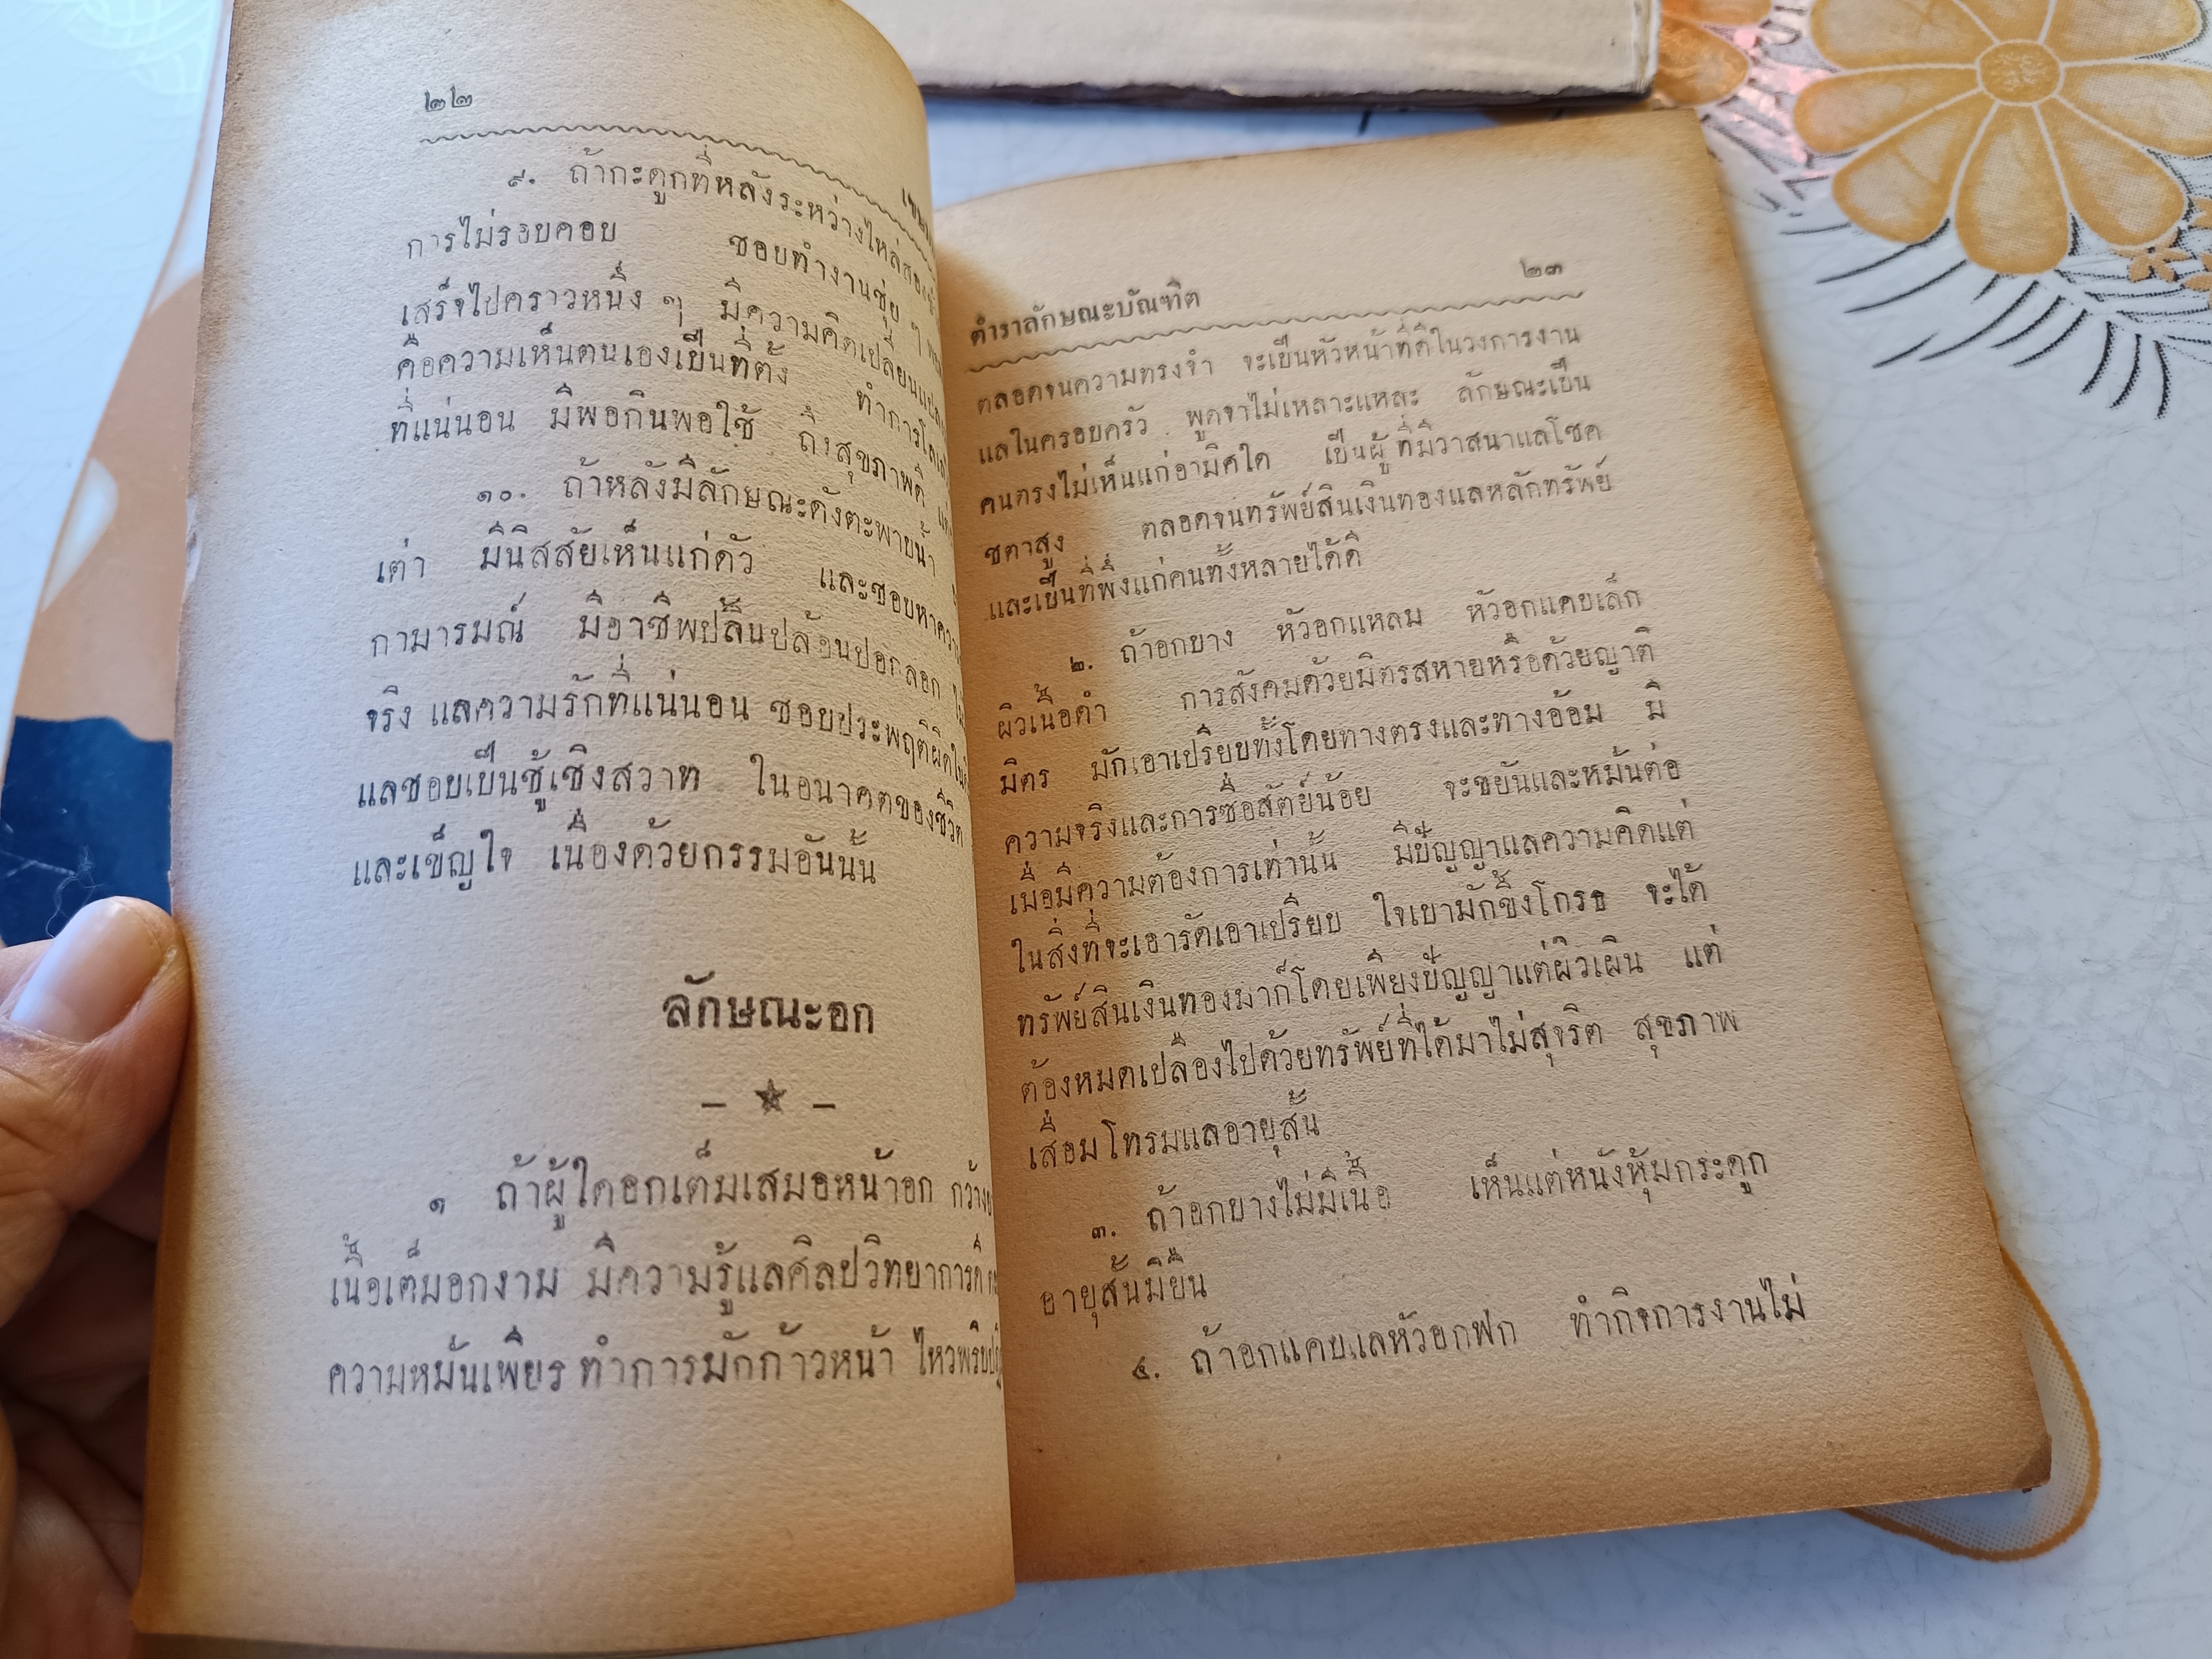 ๒๒
๙. ถ้ากะดูกที่หลังระหว่างไหล่สอง
การไม่รอบคอบ ชอบทำงานชุ่ย ๆ
เสร็จไปคราวหนึ่ง ๆ มีความคิดเปลี่ยนแปลง
คือความเห็นตนเองเป็นที่ตั้ง ทำการ
ที่แน่นอน มีพอกินพอใช้ ถึงสุขภาพดี
๑๐. ถ้าหลังมีลักษณะดังตะพาบน้ำ
เต่า มีนิสสัยเห็นแก่ตัว และชอบหาความ
กามารมณ์ มีอาชีพปลิ้นปล้อนปอกลอก
จริง แลความรักที่แน่นอน ชอบประพฤติผิดใน
แลชอบเป็นชู้เชิงสวาท ในอนาคตของชีวิต
และเข็ญใจ เนื่องด้วยกรรมอันนั้น
ลักษณะอก
— ★ —
๑ ถ้าผู้ใดอกเต็มเสมอหน้าอก กว้าง
เนื้อเต็มอกงาม มีความรู้แลศิลปวิทยาการดี
ความหมั่นเพียร ทำการมักก้าวหน้า ไหวพริบ
ตำราลักษณะบัณฑิต ๒๓
ตลอดจนความทรงจำ จะเป็นหัวหน้าที่ดีในวงการงาน
แลในครอบครัว พูดจาไม่เหลาะแหละ ลักษณะเป็น
คนตรงไม่เห็นแก่อามิศใด เป็นผู้ที่มีวาสนาแลโชค
ชตาสูง ตลอดจนทรัพย์สินเงินทองแลหลักทรัพย์
และเป็นที่พึ่งแก่คนทั้งหลายได้ดี
๒. ถ้าอกยาง หัวอกแหลม หัวอกแคบเล็ก
ผิวเนื้อดำ การสังคมด้วยมิตรสหายหรือด้วยญาติ
มิตร มักเอาเปรียบทั้งโดยทางตรงและทางอ้อม มี
ความจริงและการซื่อสัตย์น้อย จะขยันและหมั่นต่อ
เมื่อมีความต้องการเท่านั้น มีปัญญาแลความคิดแต่
ในสิ่งที่จะเอารัดเอาเปรียบ ใจเบามักขึ้งโกรธ จะได้
ทรัพย์สินเงินทองมาก็โดยเพียงปัญญาแต่ผิวเผิน แต่
ต้องหมดเปลืองไปด้วยทรัพย์ที่ได้มาไม่สุจริต สุขภาพ
เสื่อมโทรมแลอายุสั้น
๓. ถ้าอกยางไม่มีเนื้อ เห็นแต่หนังหุ้มกระดูก
อายุสั้นมิยืน
๔. ถ้าอกแคบแลหัวอกฟก ทำกิจการงานไม่